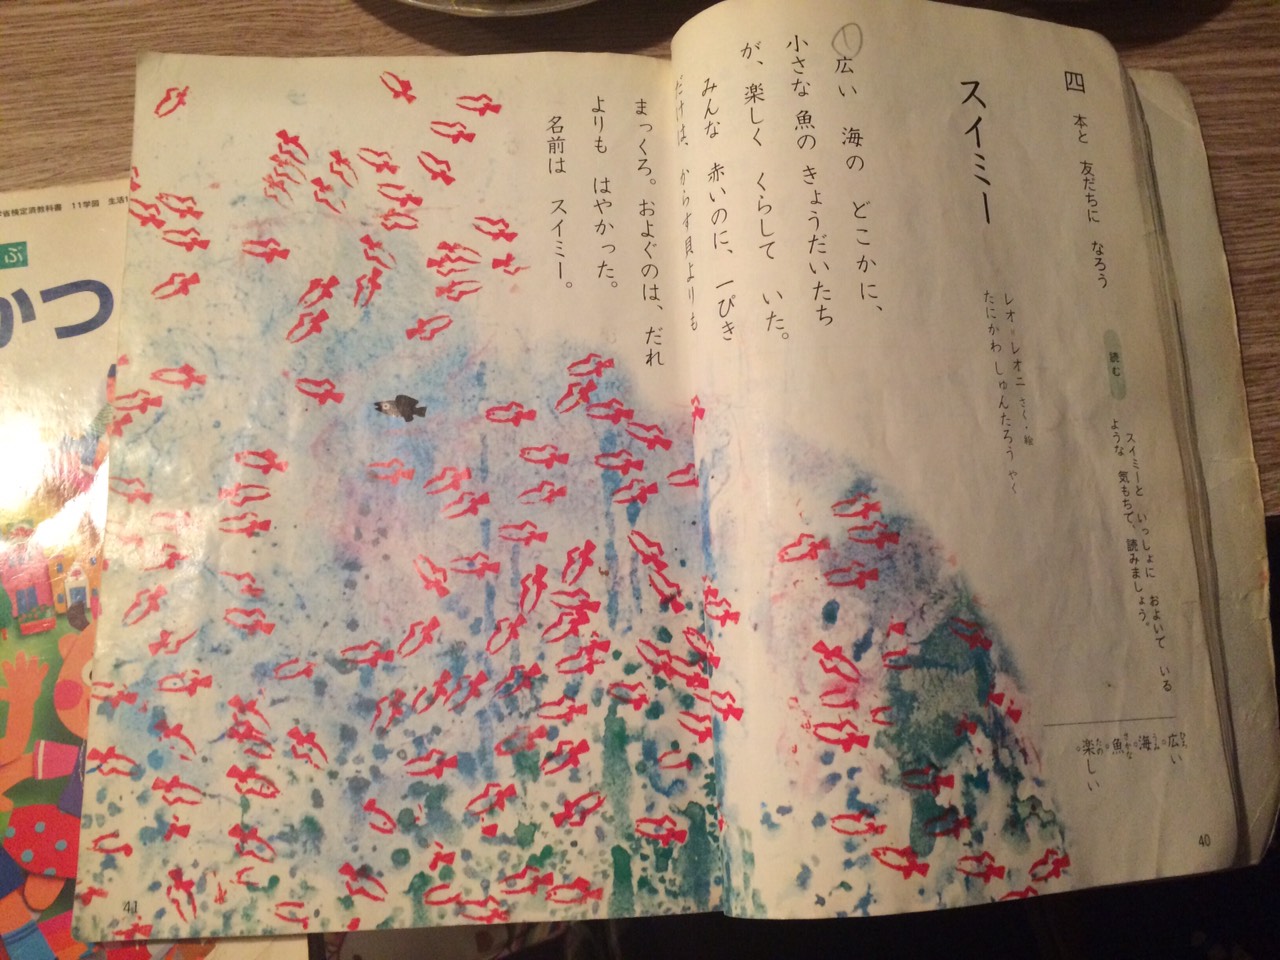 四 本と 友だちに なろう
読む
スイミーと いっしょに およいで いる
ような 気もちで、読みましょう。
スイミー
レオ＝レオニ さく・絵
たにかわ しゅんたろう やく
①広い 海の どこかに、
小さな 魚の きょうだいたち
が、楽しく くらして いた。
みんな 赤いのに、一ぴき
だけは、からす貝よりも
まっくろ。およぐのは、だれ
よりも はやかった。
名前は スイミー。
広い
海
魚
楽しい
40
41
省検定済教科書 11学図 生活
ぶ
かつ